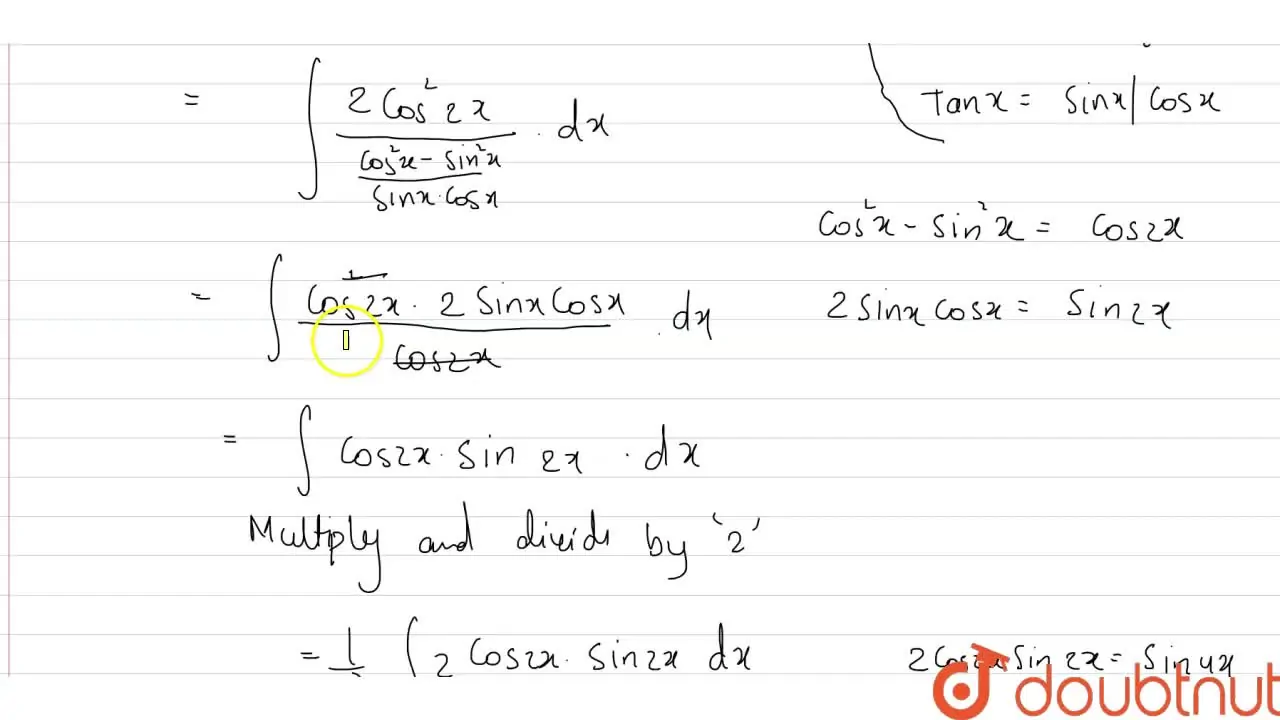 = ∫ 2 Cos² 2x / ((Cos²x - Sin²x) / (Sinx · Cosx)) · dx
Tanx = Sinx | Cosx
Cos²x - Sin²x = Cos2x
= ∫ Cos²2x · 2 Sinx Cosx / Cos2x · dx
2 Sinx Cosx = Sin2x
= ∫ Cos2x · Sin 2x · dx
Multiply and divide by '2'
= 1/2 ∫ 2 Cos2x · Sin2x dx
2 Cos2x Sin 2x = Sin4x
doubtnut